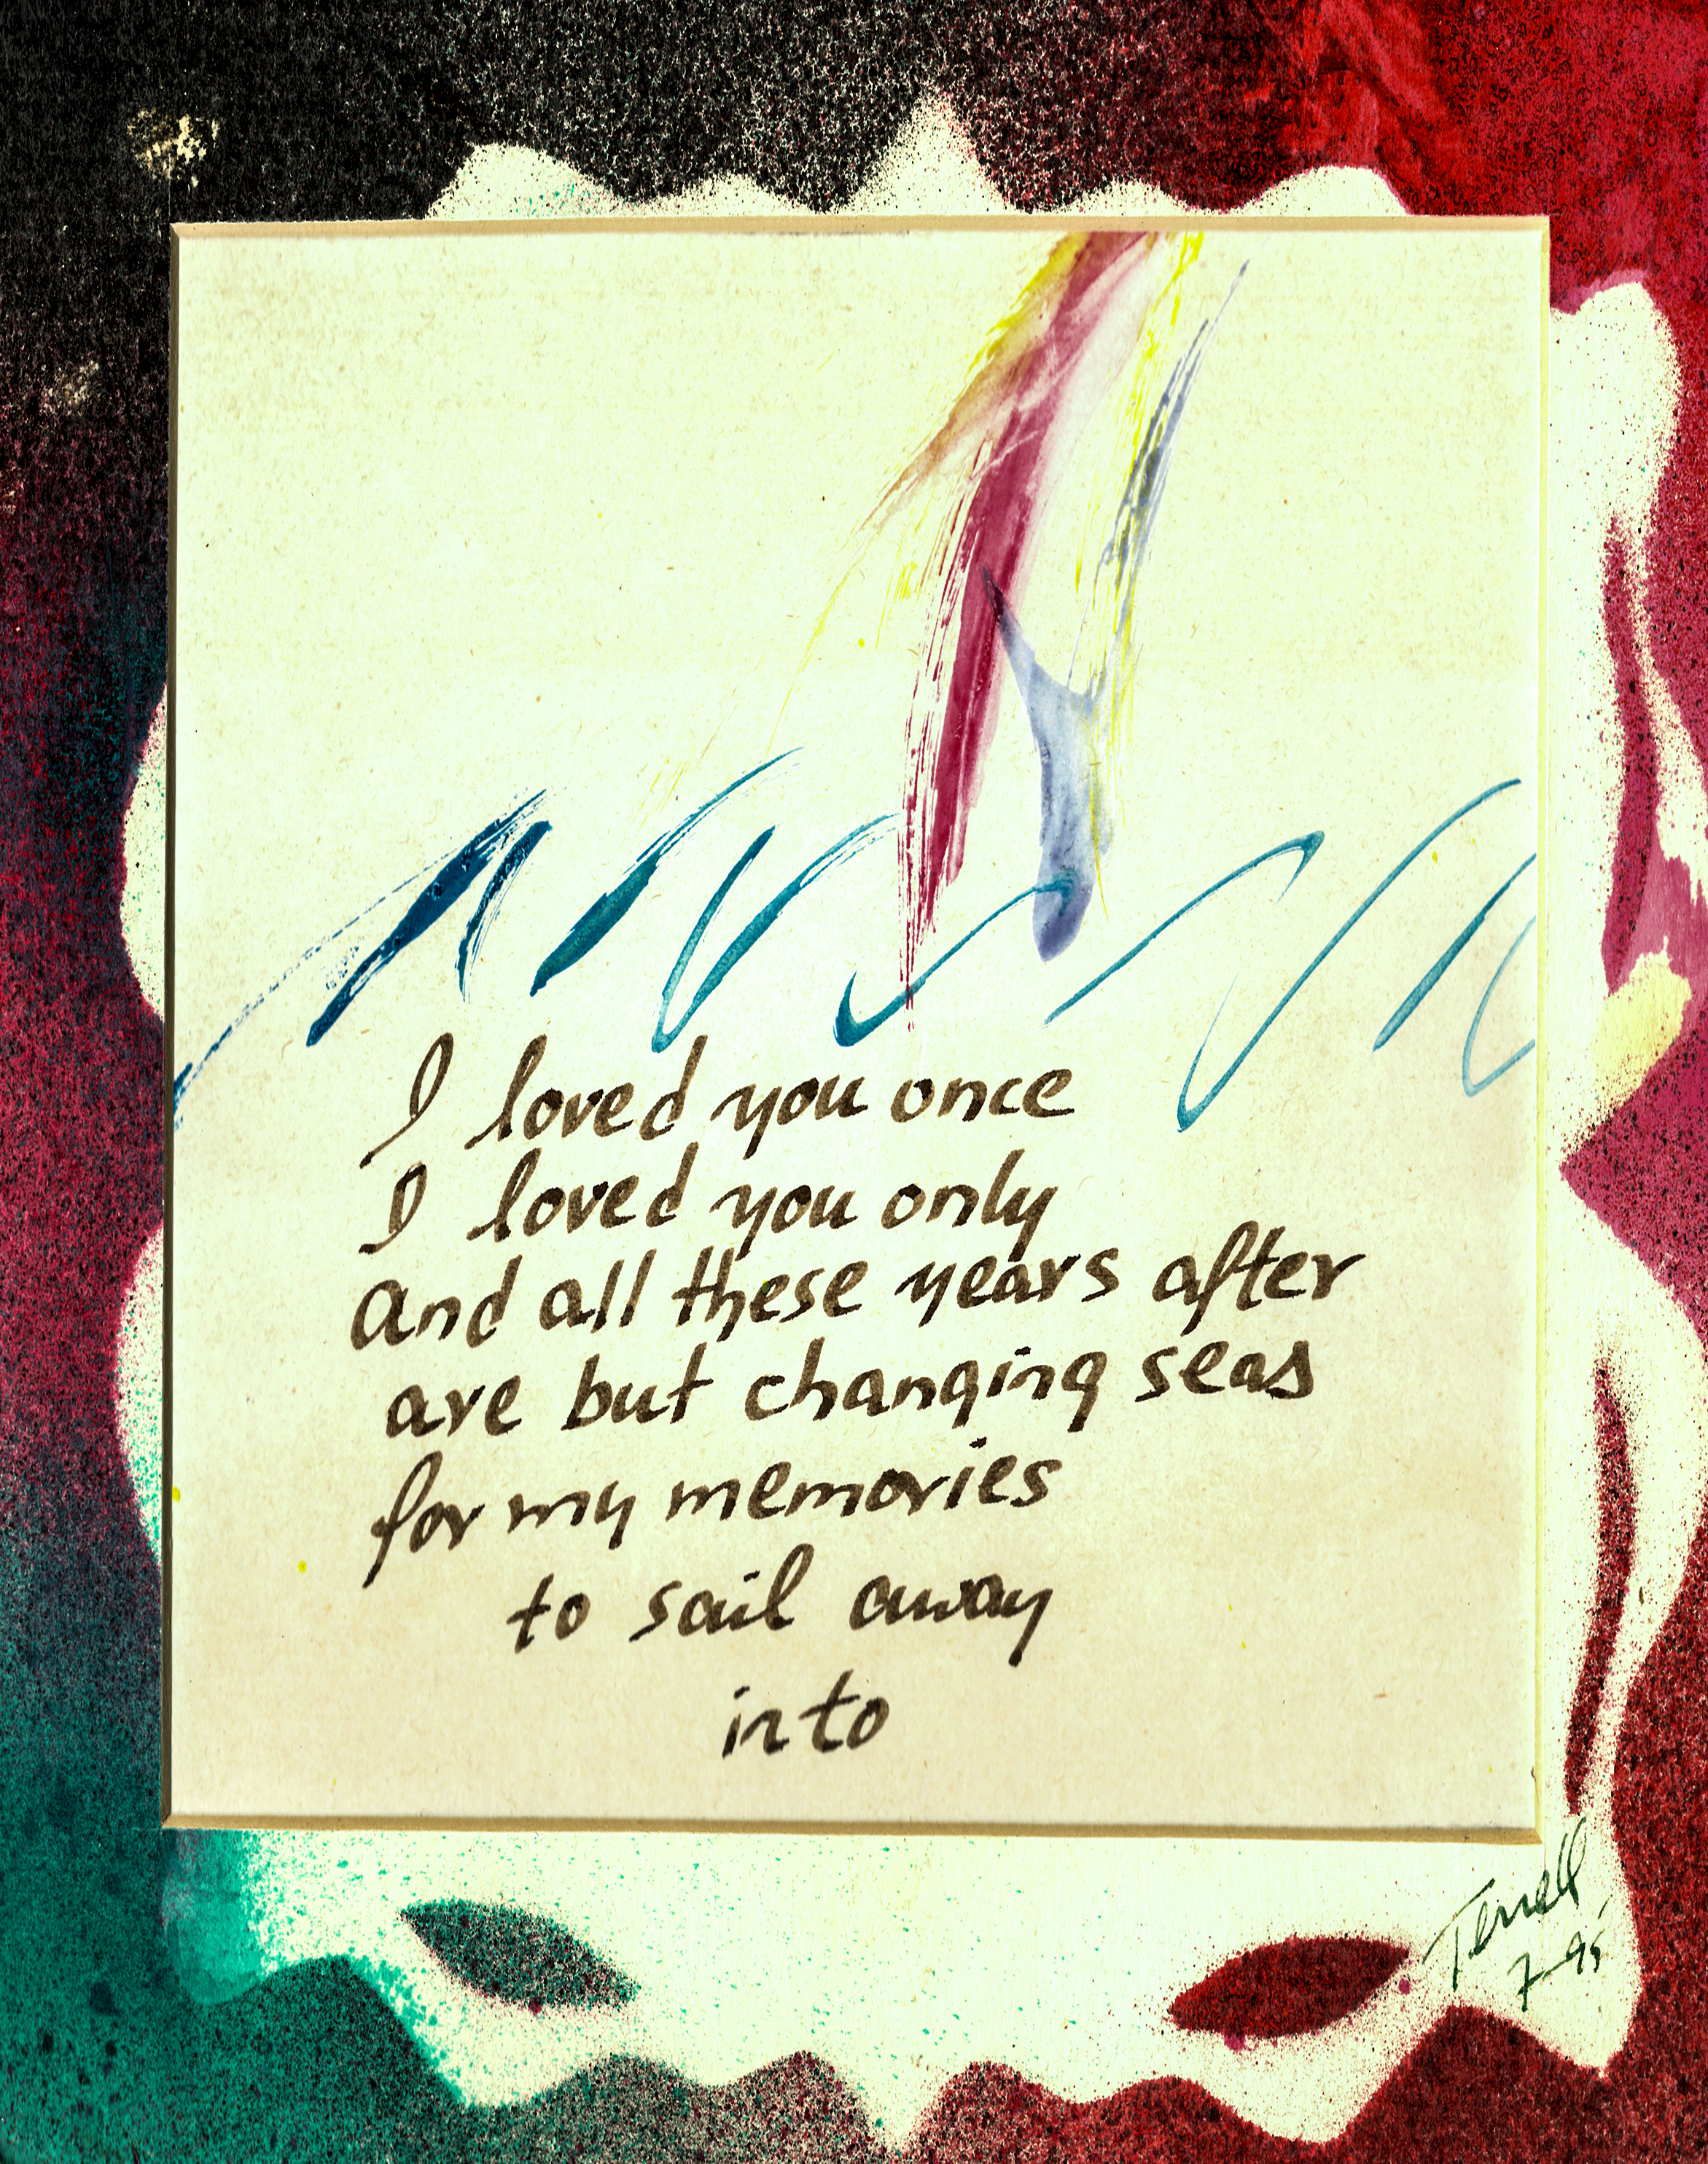 I loved you once
I loved you only
And all these years after
are but changing seas
for my memories
to sail away
into
Terrell
7-95